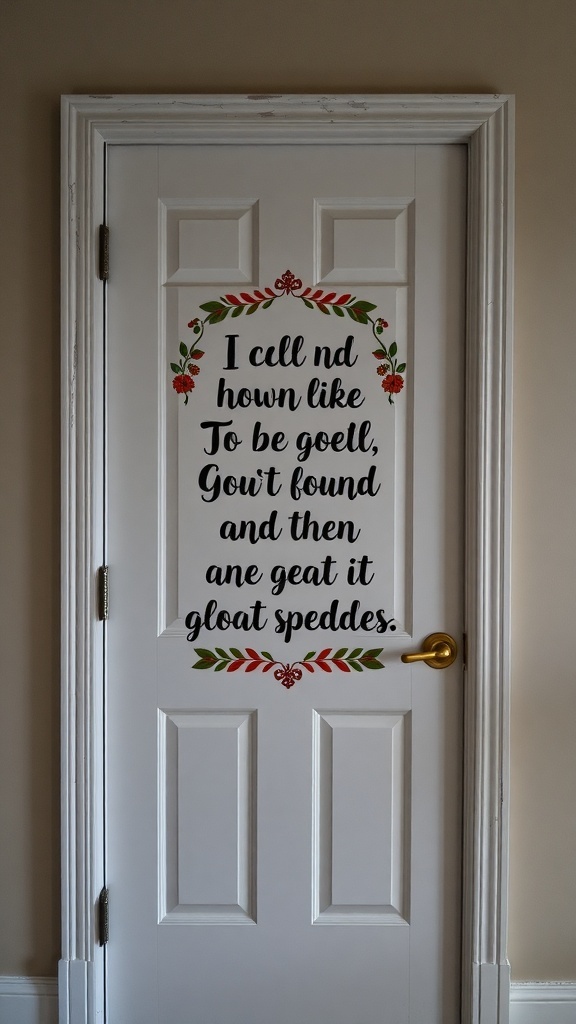 I cell nd
hown like
To be goell,
Gou't found
and then
ane geat it
gloat speddes.